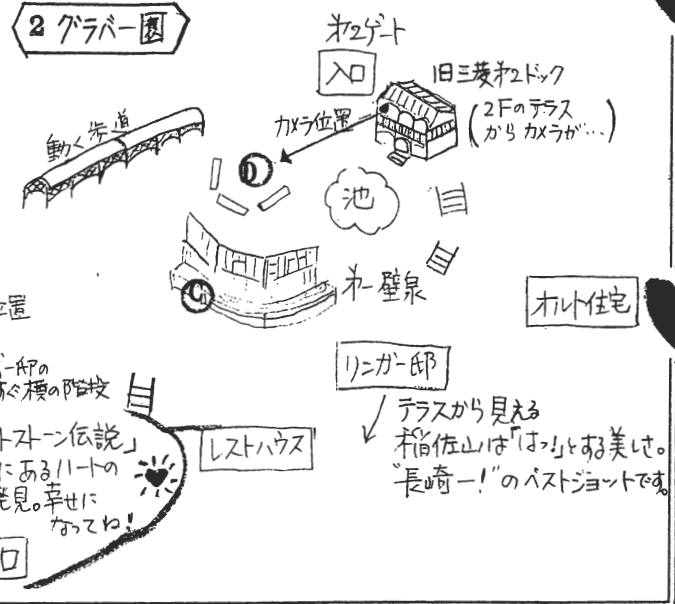 2 グラバー園
才2ゲート
入口
旧三菱才2ドック
(2Fのテラス
からカメラが…)
カメラ位置
動く歩道
池
D
C
才一壁泉
オルト住宅
置
リンガー邸
ー邸の
すぐ横の階段
テラスから見える
稲佐山は「はっ!」とする美しさ。
"長崎一!"のベストショットです。
トストーン伝説」
にあるハートの
発見。幸せに
なってね!
レストハウス
口